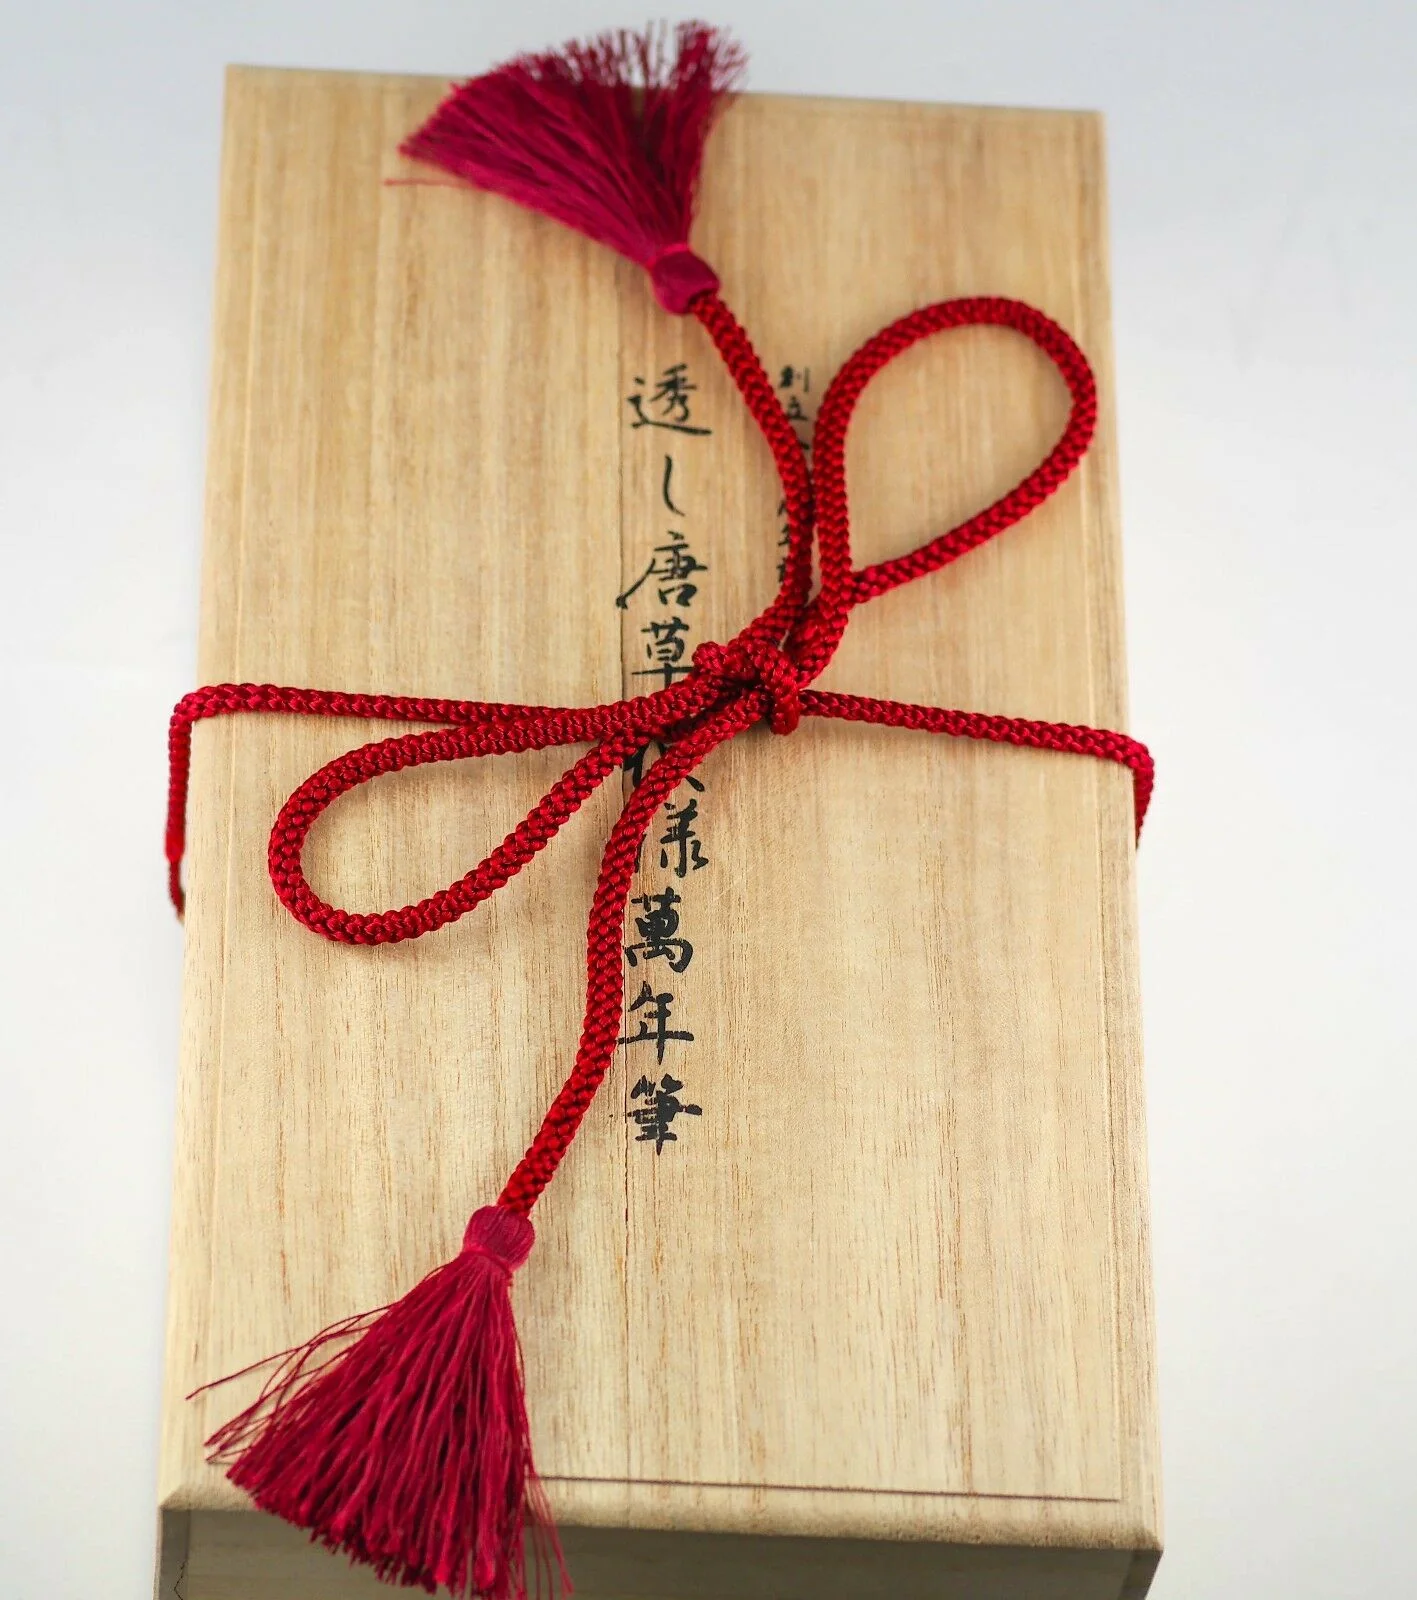 創立
透し唐草 様萬年筆